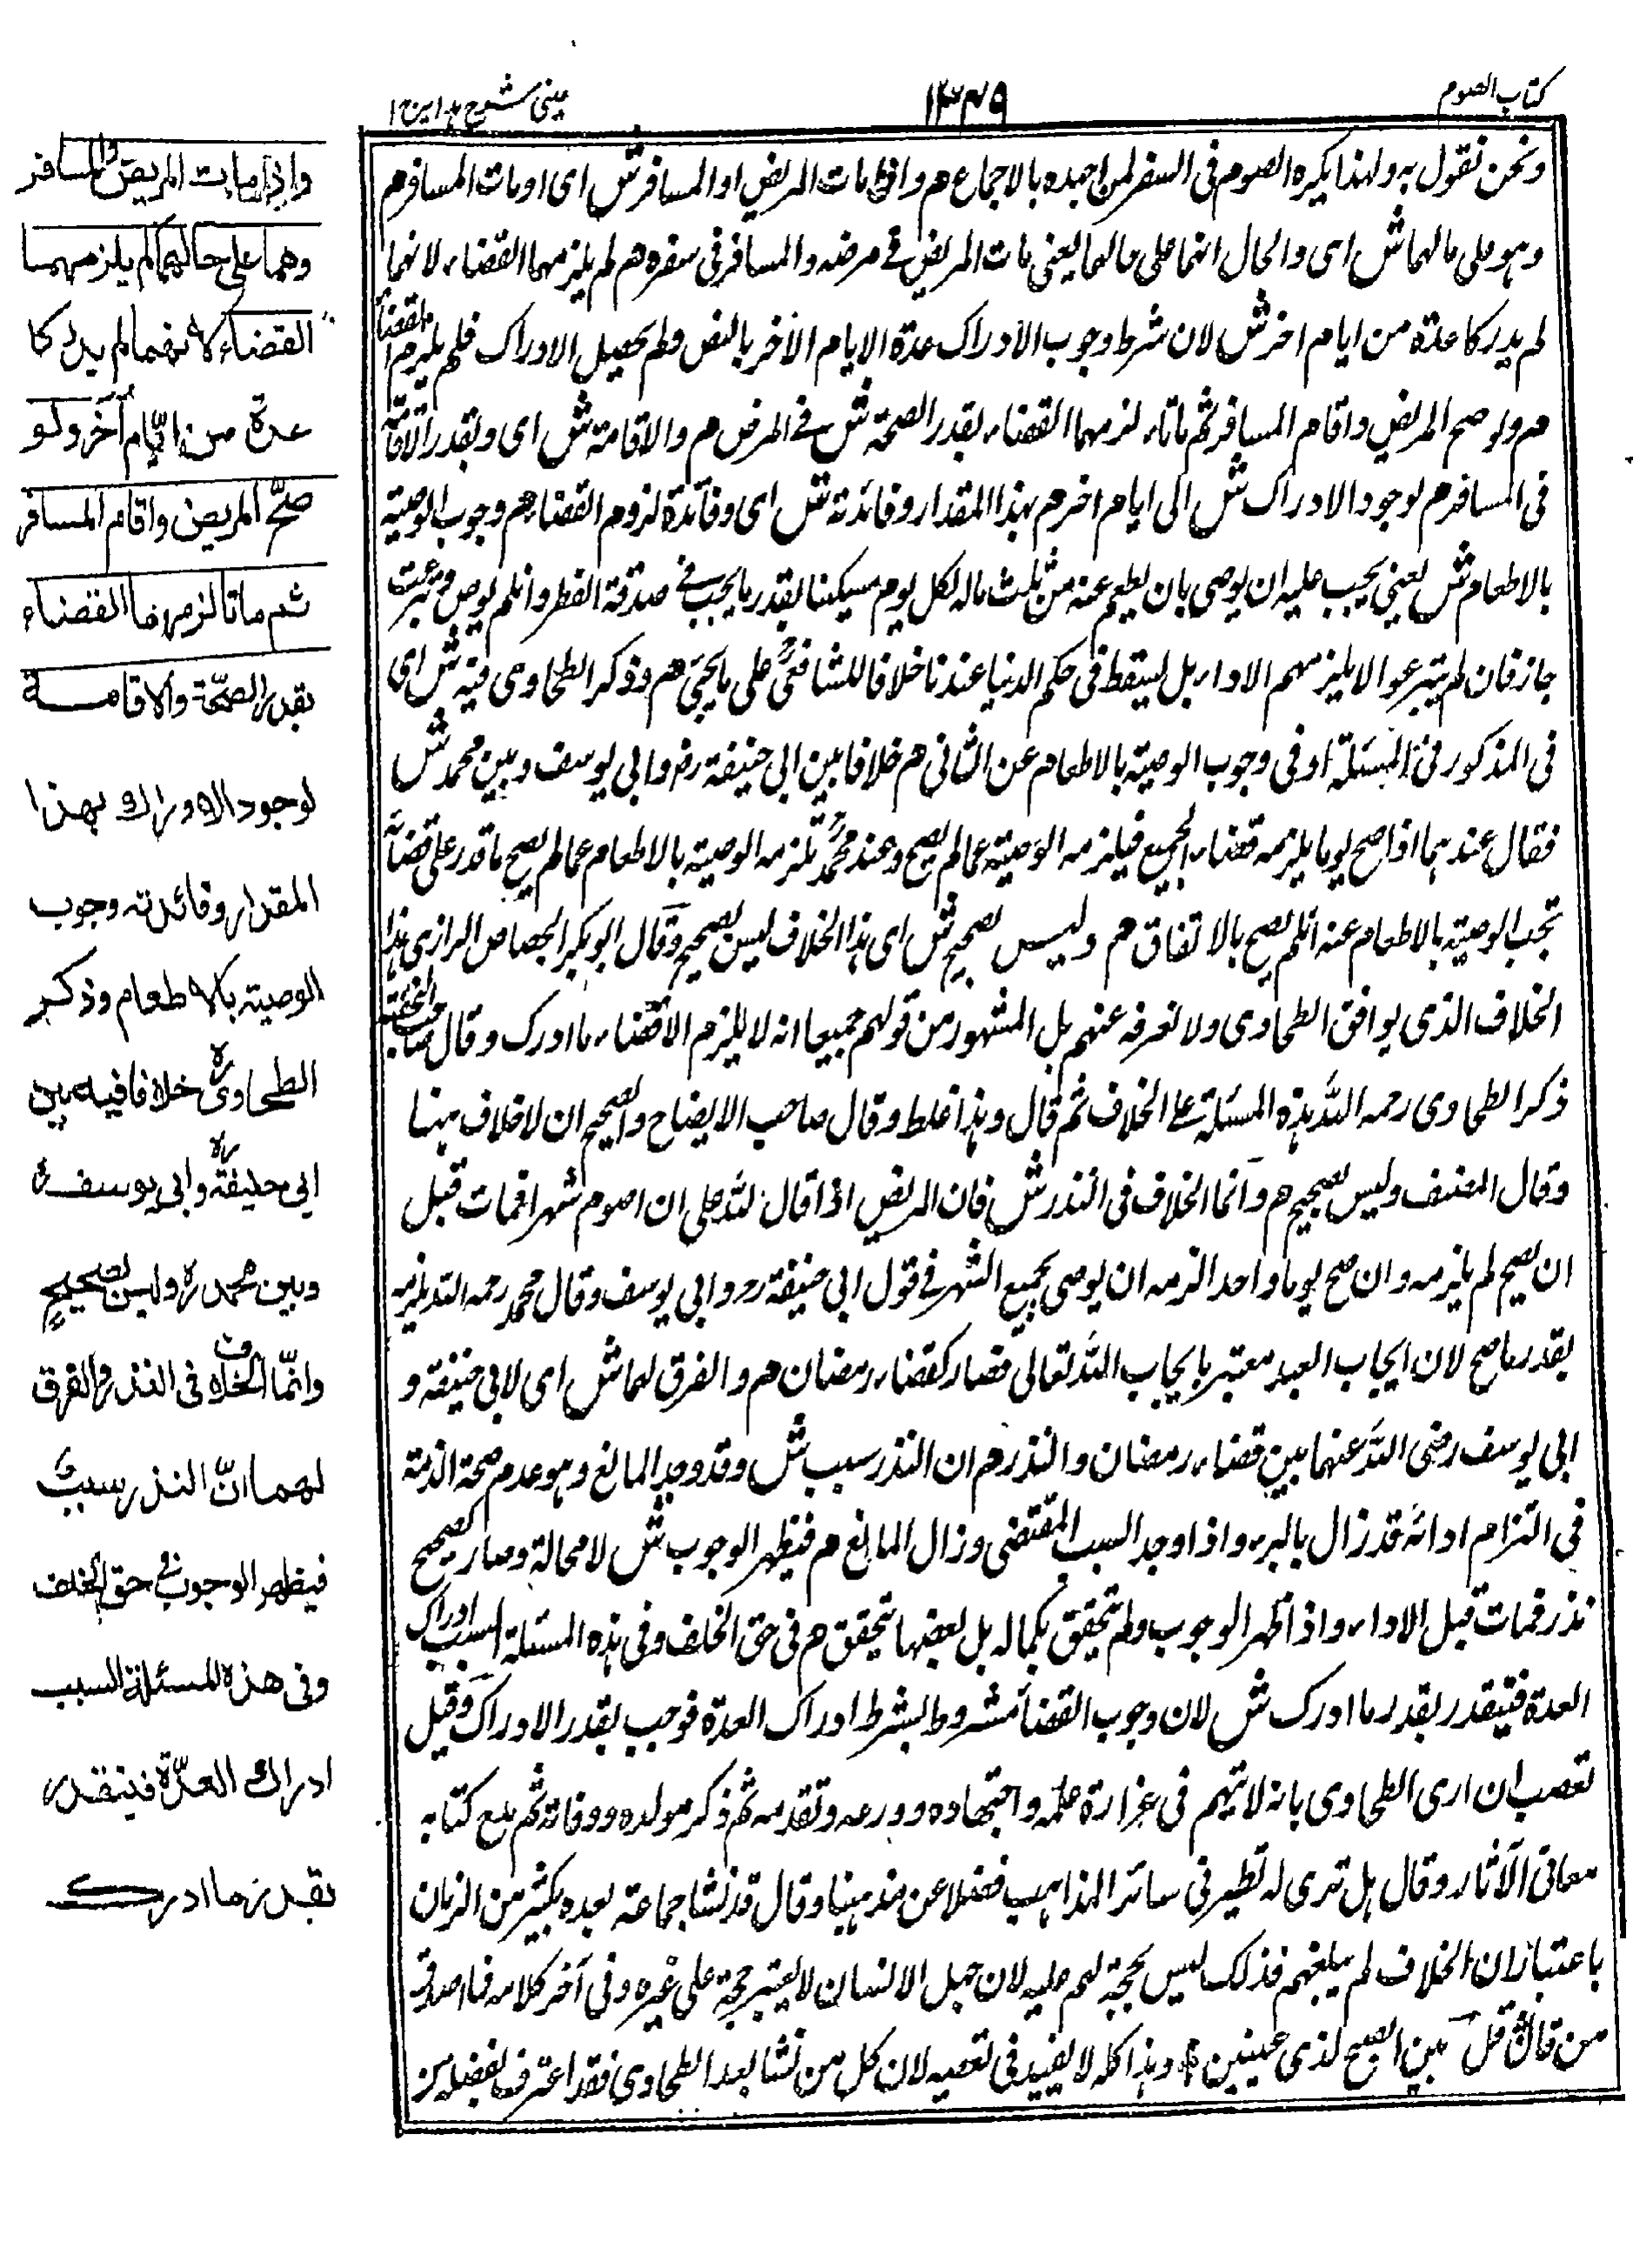 كتاب الصوم
١٣٤٩
عيني شرح هداية ج ١
ونحن نقول به ولهذا يكره الصوم في السفر لمن اجهده بالاجماع هم واذا مات المريض او المسافر ش اى او مات المسافر م
وهو على حالهما ش اى والحال انهما على حالهما يعني مات المريض في مرضه والمسافر في سفره هم لم يلزمهما القضاء لانهما
لم يدركا عدة من ايام اخر ش لان شرط وجوب الادراك عدة الايام الأخر بالنص ولم يحصل الادراك فلم يلزم القضاء
هم ولو صح المريض واقام المسافر ثم ماتا لزمهما القضاء بقدر الصحة ش في المرض م والاقامة ش اى وبقدر الاقامة
في المسافر م لوجود الادراك ش الى ايام اخر هم بهذا المقدار وفائدته ش اى وفائدة لزوم القضاء هم وجوب الوصية
بالاطعام ش يعني يجب عليه ان يوصى بان يطعم عنه من ثلث ماله لكل يوم مسكينا بقدر ما يجب في صدقة الفطر وانلم يوص وتبرعت
جاز فان لم يتبرعوا لا يلزمهم الاداء بل يسقط في حكم الدنيا عندنا خلافا للشافعى على ما يجيء هم وذكر الطحاوى فيه ش اى
في المذكور في المسئلة او في وجوب الوصية بالاطعام عن الثاني هم خلافا بين ابي حنيفة رم وابي يوسف وبين محمد ش
فقال عندهما اذا صح يوما يلزمه قضاء الجميع فيلزمه الوصية عما لم يصح وعند محمد تلزمه الوصية بالاطعام عما لم يصح ما قدر على قضائه
تجب الوصية بالاطعام عنه انلم يصح بالاتفاق هم وليس بصحيح ش اى هذا الخلاف ليس بصحيح وقال ابو بكر الجصاص الرازى هذا
الخلاف الذى يوافق الطحاوى ولا نعرفه عنهم بل المشهور من قولهم جميعا انه لا يلزم الا قضاء ما ادرك وقال صاحب التحفة
ذكر الطحاوى رحمه الله هذه المسئلة على الخلاف ثم قال وهذا غلط وقال صاحب الايضاح والصحيح ان لا خلاف ههنا
وقال المصنف وليس بصحيح هم وانما الخلاف في النذر ش فان المريض اذا قال لله على ان اصوم شهرا فمات قبل
ان يصح لم يلزمه وان صح يوما واحدا لزمه ان يوصى بجميع الشهر في قول ابي حنيفة رح وابي يوسف وقال محمد رحمه الله يلزمه
بقدر ما صح لان ايجاب العبد معتبر بايجاب الله تعالى فصار كقضاء رمضان هم والفرق لهما ش اى لابي حنيفة و
ابي يوسف رضى الله عنهما بين قضاء رمضان والنذر هم ان النذر سبب ش وقد وجد المانع وهو عدم صحة الذمة
في التزام ادائه قد زال بالبرء واذا وجد السبب المقتضى وزال المانع م فيظهر الوجوب ش لا محالة وصار كصحيح
نذر فمات قبل الاداء واذا ظهر الوجوب ولم يتحقق بكماله بل بعضها يتحقق م في حق الخلف وفي هذه المسئلة السبب ادراك
العدة فيتقدر بقدر ما ادرك ش لان وجوب القضاء مشروط بشرط ادراك العدة فوجب بقدر الادراك وقيل
تعصب ان ارى الطحاوى بانه لا يتهم في غزارة علمه واجتهاده وورعه وتقدمه ثم ذكر مولده ووفاته ثم مدح كتابه
معاني الآثار وقال هل ترى له نظير في سائر المذاهب فضلا عن مذهبنا وقال قد نشا جماعة بعده بكثير من الزمان
باعتبار ان الخلاف لم يبلغهم فذلك ليس بحجة لهم عليه لان جهل الانسان لا يعتبر حجة على غيره وفي آخر كلامه فما اصدق
من قال قل بين الصبح لذى عينين وهذا كله لا يفيد في تعصبه لان كل من نشا بعد الطحاوى فقد اعترف بفضله من
واذا مات المريض والمسافر
وهما على حالهما لم يلزمهما
القضاء لانهما لم يدركا
عدة من ايّام أخر ولو
صحّ المريض واقام المسافر
ثم ماتا لزمهما القضاء
بقدر الصحّة والاقامة
لوجود الادراك بهذا
المقدار وفائدته وجوب
الوصية بالاطعام وذكر
الطحاوى ره خلافا فيه بين
ابي حنيفة ره وابي يوسف ره
وبين محمد ره وليس بصحيح
وانّما الخلاف في النذر والفرق
لهما انّ النذر سبب
فيظهر الوجوب في حق الخلف
وفي هذه المسئلة السبب
ادراك العدّة فيتقدر
بقدر ما ادرك